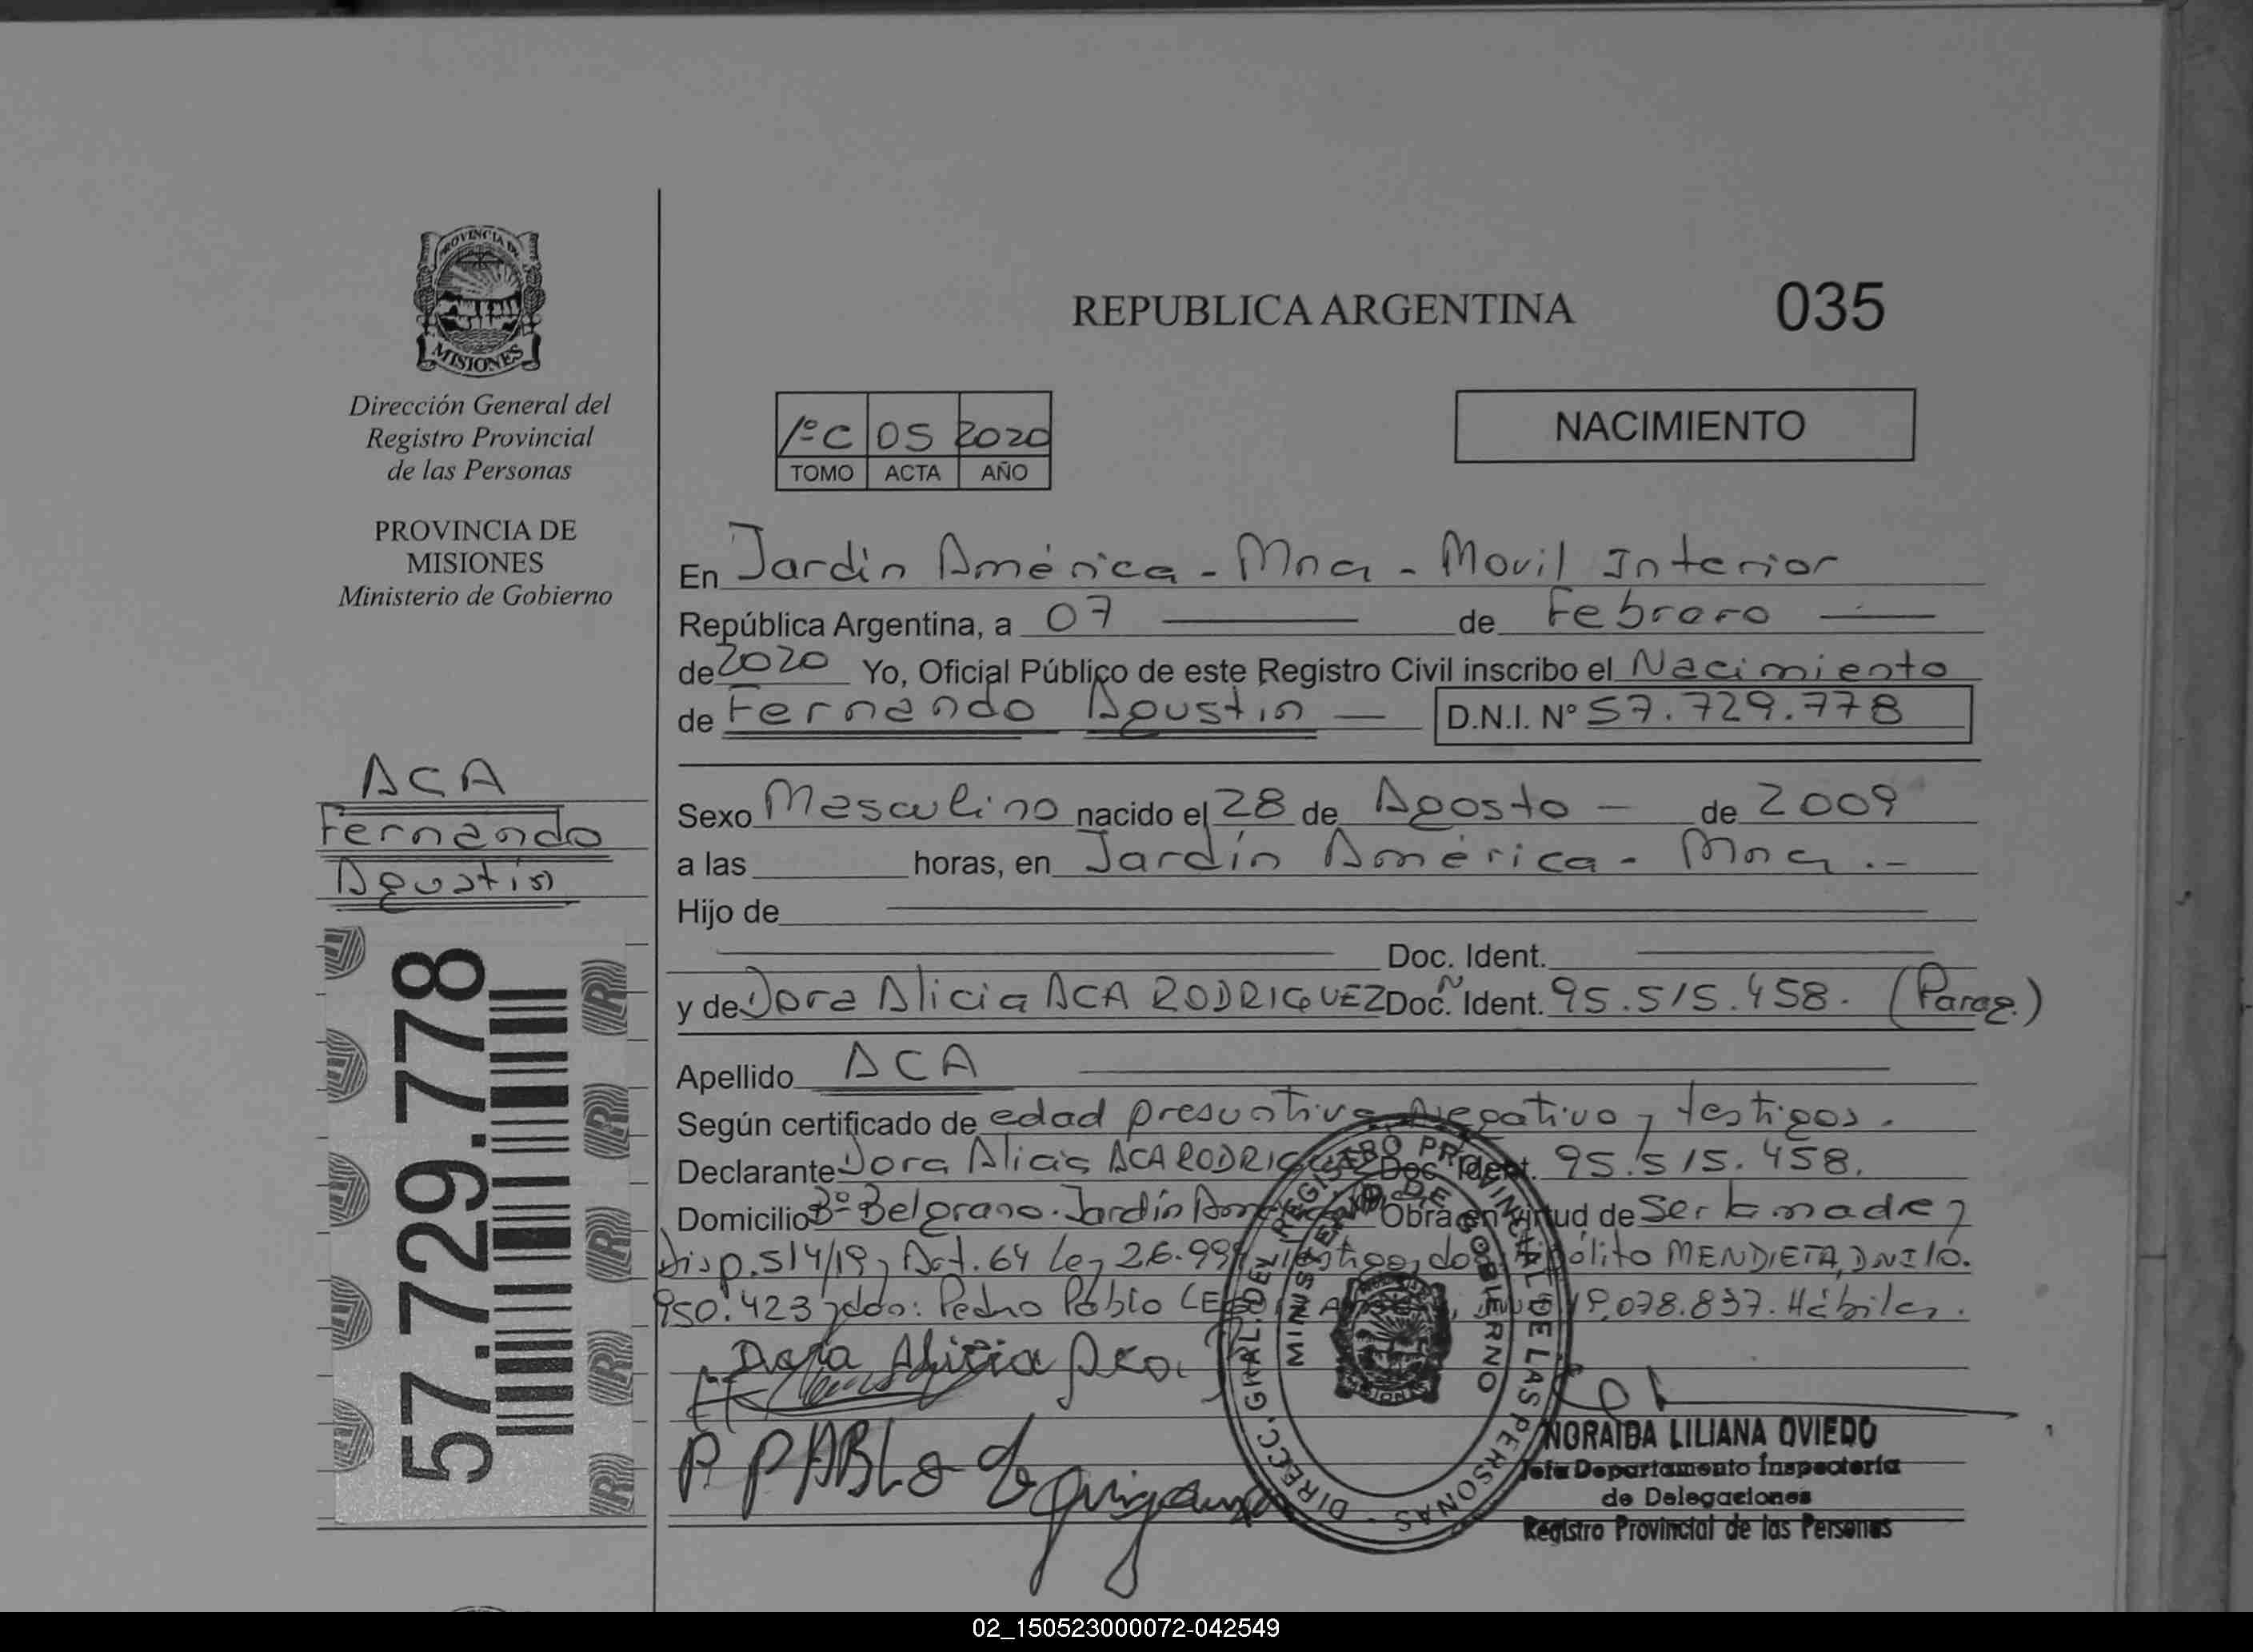 PROVINCIA DE
MISIONES
Dirección General del
Registro Provincial
de las Personas
PROVINCIA DE
MISIONES
Ministerio de Gobierno
ACA
Fernando
Agustín
57.729.778
REPUBLICA ARGENTINA
035
1ºC 05 2020
TOMO ACTA AÑO
NACIMIENTO
En Jardín América - Mnes - Movil Interior
República Argentina, a 07 de Febrero
de 2020 Yo, Oficial Público de este Registro Civil inscribo el Nacimiento
de Fernando Agustin — D.N.I. Nº 57.729.778
Sexo Masculino nacido el 28 de Agosto — de 2009
a las horas, en Jardín América - Mnes .-
Hijo de
Doc. Ident.
y de Dora Alicia ACA RODRIGUEZ Doc. Ident. Nº 95.515.458. (Parag.)
Apellido ACA
Según certificado de edad presuntiva, Negativo y testigos.
Declarante Dora Alicia ACA RODRIGUEZ Doc. Ident. 95.515.458.
Domicilio Bº Belgrano. Jardín Obra en virtud de Ser la madre y
Disp. 514/19 y Art. 64 Ley 26.994 MENDIETA, DNI 10.
950.423 y don: Pedro Pablo 078.837. Hábiles.
Dora Alicia Aca
P. PABLO
DIRECC. GRAL. DEL REGISTRO PROVINCIAL DE LAS PERSONAS -
MINISTERIO DE GOBIERNO
MISIONES
NORAIDA LILIANA OVIEDO
Jefa Departamento Inspectoría
de Delegaciones
Registro Provincial de las Personas
02_150523000072-042549